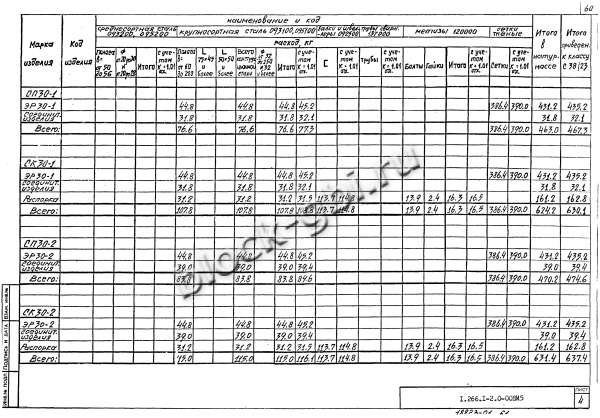 60
наименование и код
Марка изделия
Код изделия
среднесортная сталь 093200, 095200
крупносортная сталь 093100, 095100
метизы 120000
Итого в натур. массе
Итого приведен. к классу С 38/23
расход, кг
Итого
Всего
Итого
трубы
Болты Гайки Итого
Сетки
СП30-1
ЭР30-1 44.8 44.8 44.8 45.2 386.4 390.0 431.2 435.2
Соединит. изделия 31.8 31.8 31.8 32.1 31.8 32.1
Всего: 76.6 76.6 76.6 77.3 386.4 390.0 463.0 467.3
СК30-1
ЭР30-1 44.8 44.8 44.8 45.2 386.4 390.0 431.2 435.2
Соединит. изделия 31.8 31.8 31.8 32.1 31.8 32.1
Распорка 31.2 31.2 31.2 31.5 113.7 114.8 13.9 2.4 16.3 16.5 161.2 162.8
Всего: 107.8 107.8 107.8 108.8 113.7 114.8 13.9 2.4 16.3 16.5 386.4 390.0 624.2 630.1
СП30-2
ЭР30-2 44.8 44.8 44.8 45.2 386.4 390.0 431.2 435.2
соединит. изделия 39.0 39.0 39.0 39.4 39.0 39.4
Всего: 83.8 83.8 83.8 84.6 386.4 390.0 470.2 474.6
СК30-2
ЭР30-2 44.8 44.8 44.8 45.2 386.4 390.0 431.2 435.2
соединит. изделия 39.0 39.0 39.0 39.4 39.0 39.4
Распорка 31.2 31.2 31.2 31.5 113.7 114.8 13.9 2.4 16.3 16.5 161.2 162.8
Всего: 115.0 115.0 115.0 116.1 113.7 114.8 13.9 2.4 16.3 16.5 386.4 390.0 631.4 637.4
block-gbi.ru
1.266.1-2.0-00ВМ5
Лист
4